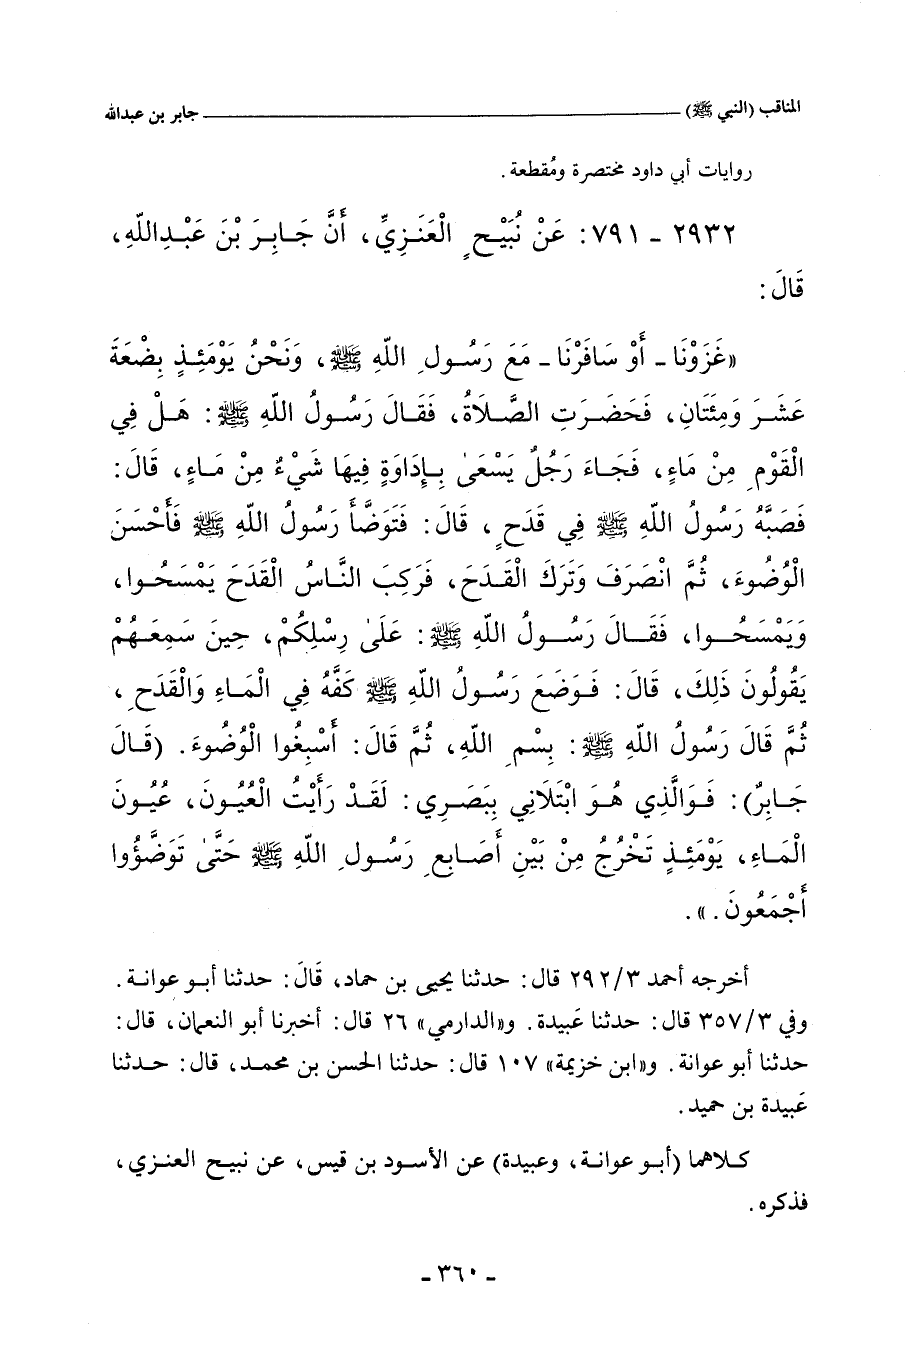 المناقب (النبي ﷺ) ــــــــ جابر بن عبدالله
روايات أبي داود مختصرة ومُقطعة .
٢٩٣٢ ـ ٧٩١ : عَنْ نُبَيْحٍ الْعَنَزِيِّ، أَنَّ جَابِرَ بْنَ عَبْدِاللّهِ،
قَالَ :
«غَزَوْنَا ـ أَوْ سَافَرْنَا ـ مَعَ رَسُولِ اللّهِ ﷺ، وَنَحْنُ يَوْمَئِذٍ بِضْعَةَ
عَشَرَ وَمِئَتَانِ، فَحَضَرَتِ الصَّلَاةُ، فَقَالَ رَسُولُ اللّهِ ﷺ: هَلْ فِي
الْقَوْمِ مِنْ مَاءٍ، فَجَاءَ رَجُلٌ يَسْعَىٰ بِإِدَاوَةٍ فِيهَا شَيْءٌ مِنْ مَاءٍ، قَالَ:
فَصَبَّهُ رَسُولُ اللّهِ ﷺ فِي قَدَحٍ، قَالَ: فَتَوَضَّأَ رَسُولُ اللّهِ ﷺ فَأَحْسَنَ
الْوُضُوءَ، ثُمَّ انْصَرَفَ وَتَرَكَ الْقَدَحَ، فَرَكِبَ النَّاسُ الْقَدَحَ يَمْسَحُوا،
وَيَمْسَحُوا، فَقَالَ رَسُولُ اللّهِ ﷺ: عَلَىٰ رِسْلِكُمْ، حِينَ سَمِعَهُمْ
يَقُولُونَ ذَلِكَ، قَالَ: فَوَضَعَ رَسُولُ اللّهِ ﷺ كَفَّهُ فِي الْمَاءِ وَالْقَدَحِ،
ثُمَّ قَالَ رَسُولُ اللّهِ ﷺ: بِسْمِ اللّهِ، ثُمَّ قَالَ: أَسْبِغُوا الْوُضُوءَ. (قَالَ
جَابِرٌ): فَوَالَّذِي هُوَ ابْتَلَانِي بِبَصَرِي: لَقَدْ رَأَيْتُ الْعُيُونَ، عُيُونَ
الْمَاءِ، يَوْمَئِذٍ تَخْرُجُ مِنْ بَيْنِ أَصَابِعِ رَسُولِ اللّهِ ﷺ حَتَّىٰ تَوَضَّؤُوا
أَجْمَعُونَ.».
أخرجه أحمد ٢٩٢/٣ قال: حدثنا يحيى بن حماد، قَالَ: حدثنا أبو عوانة.
وفي ٣٥٧/٣ قال: حدثنا عَبيدة. و«الدارمي» ٢٦ قال: أخبرنا أبو النعمان، قال:
حدثنا أبو عوانة. و«ابن خزيمة» ١٠٧ قال: حدثنا الحسن بن محمد، قال: حدثنا
عَبيدة بن حميد.
كلاهما (أبو عوانة، وعبيدة) عن الأسود بن قيس، عن نبيح العنزي،
فذكره.
ـ ٣٦٠ ـ